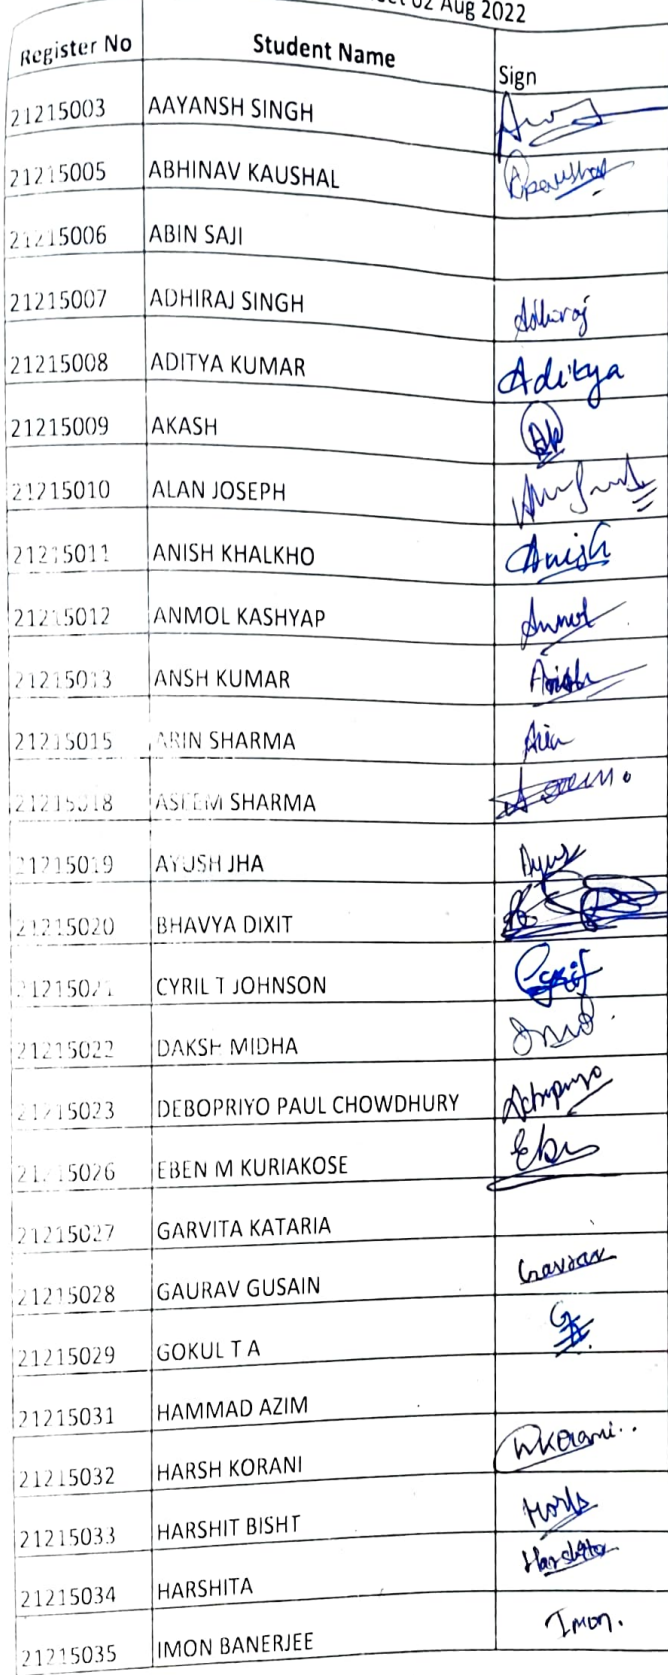 02 Aug 2022
Register No Student Name Sign
21215003 AAYANSH SINGH
21215005 ABHINAV KAUSHAL
21215006 ABIN SAJI
21215007 ADHIRAJ SINGH Adhiraj
21215008 ADITYA KUMAR Aditya
21215009 AKASH
21215010 ALAN JOSEPH
21215011 ANISH KHALKHO Anish
21215012 ANMOL KASHYAP Anmol
21215013 ANSH KUMAR
21215015 ARIN SHARMA
21215018 ASEEM SHARMA
21215019 AYUSH JHA
21215020 BHAVYA DIXIT
21215021 CYRIL T JOHNSON
21215022 DAKSH MIDHA
21215023 DEBOPRIYO PAUL CHOWDHURY
21215026 EBEN M KURIAKOSE
21215027 GARVITA KATARIA
21215028 GAURAV GUSAIN Gaurav
21215029 GOKUL T A
21215031 HAMMAD AZIM
21215032 HARSH KORANI
21215033 HARSHIT BISHT
21215034 HARSHITA Harshita
21215035 IMON BANERJEE Imon.